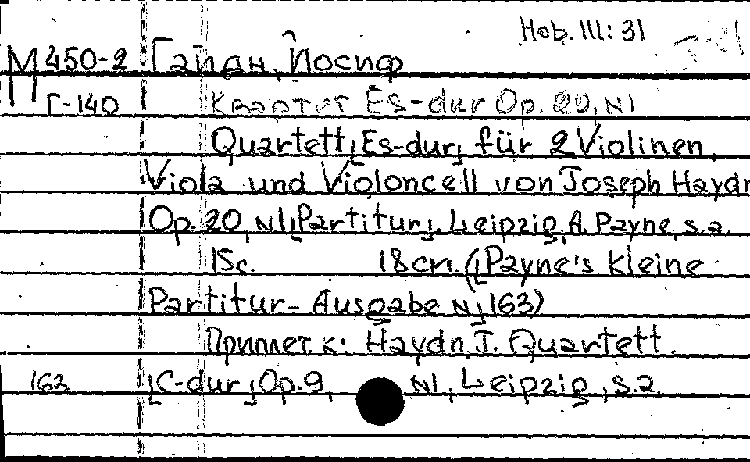 Hob. III: 31
М 450-2 Гайдн, Йосиф
Г-140 Квартет Es-dur Op. 20, N1
Quartett [Es-dur] für 2 Violinen,
Viola und Violoncell von Joseph Haydn
Op. 20, N1 [Partitur]. Leipzig, A. Payne, s.a.
15c. 18cm. ([Payne's kleine
Partitur-Ausgabe N] 163)
Приплет к: Haydn, J. Quartett
163 [C-dur], Op. 9, N1, Leipzig, s.a.